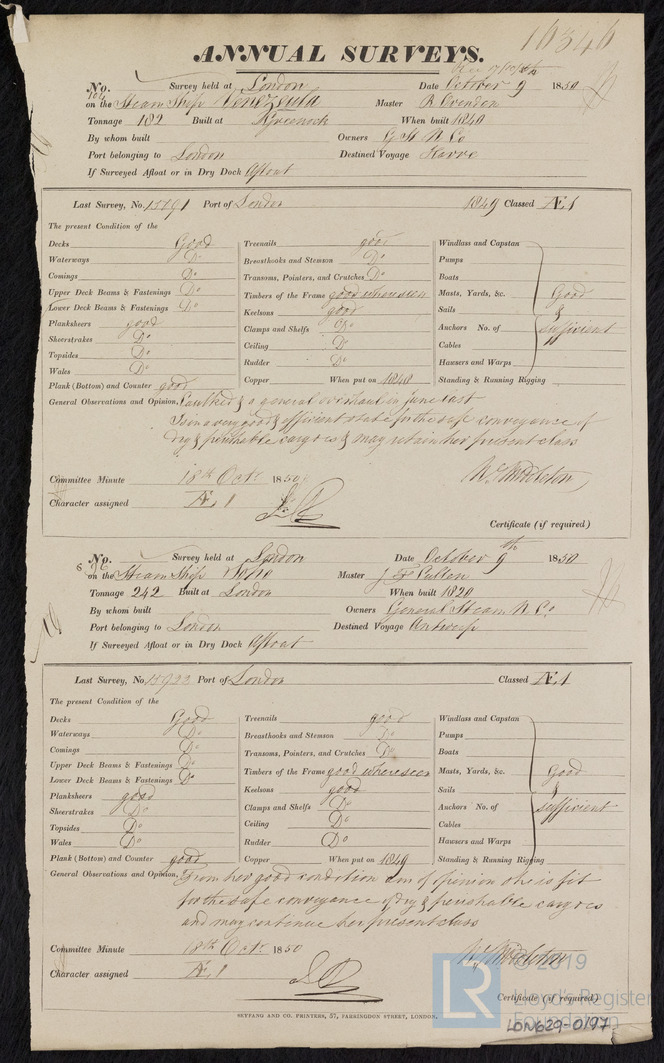 16346
ANNUAL SURVEYS.
No. 164 Survey held at London Date October 9 1850
on the Steam Ship Venezuela Master R. Ovenden
Tonnage 182 Built at Greenock When built 1840
By whom built Owners G St N Co
Port belonging to London Destined Voyage Havre
If Surveyed Afloat or in Dry Dock Afloat
Last Survey, No. 15791 Port of London 1849 Classed Æ1
The present Condition of the
Decks Good Treenails good Windlass and Capstan
Waterways Do Breasthooks and Stemson Do Pumps
Comings Do Transoms, Pointers, and Crutches Do Boats
Upper Deck Beams & Fastenings Do Timbers of the Frame good where seen Masts, Yards, &c. Good
Lower Deck Beams & Fastenings Do Keelsons good Sails &
Planksheers good Clamps and Shelfs Do Anchors No. of sufficient
Sheerstrakes Do Ceiling Do Cables
Topsides Do Rudder Do Hawsers and Warps
Wales Do Copper When put on 1848 Standing & Running Rigging
Plank (Bottom) and Counter good
General Observations and Opinion, Caulked & a general overhaul in June last
Is in a very good & efficient state for the safe conveyance of
dry & perishable cargoes & may retain her present class
Committee Minute 18th Octr. 1850 Wy Middleton
Character assigned Æ 1
Certificate (if required)
No. Survey held at London Date October 9th 1850
on the Steam Ship Master J F Cullen
Tonnage 242 Built at London When built 1820
By whom built Owners General Steam N. Co.
Port belonging to London Destined Voyage Antwerp
If Surveyed Afloat or in Dry Dock Afloat
Last Survey, No. 15922 Port of London Classed Æ1
The present Condition of the
Decks Good Treenails good Windlass and Capstan
Waterways Do Breasthooks and Stemson Do Pumps
Comings Do Transoms, Pointers, and Crutches Do Boats
Upper Deck Beams & Fastenings Do Timbers of the Frame good where seen Masts, Yards, &c. Good
Lower Deck Beams & Fastenings Do Keelsons good Sails &
Planksheers good Clamps and Shelfs Do Anchors No. of sufficient
Sheerstrakes Do Ceiling Do Cables
Topsides Do Rudder Do Hawsers and Warps
Wales Do Copper When put on 1849 Standing & Running Rigging
Plank (Bottom) and Counter good
General Observations and Opinion, From her good condition am of opinion she is fit
for the safe conveyance of dry & perishable cargoes
and may continue her present class
Committee Minute 18th Octr. 1850 Wy Middleton
Character assigned Æ 1
Certificate (if required)
SEYFANG AND CO. PRINTERS, 57, FARRINGDON STREET, LONDON.
LR © 2019
Lloyd's Register
Foundation
LON629-0197